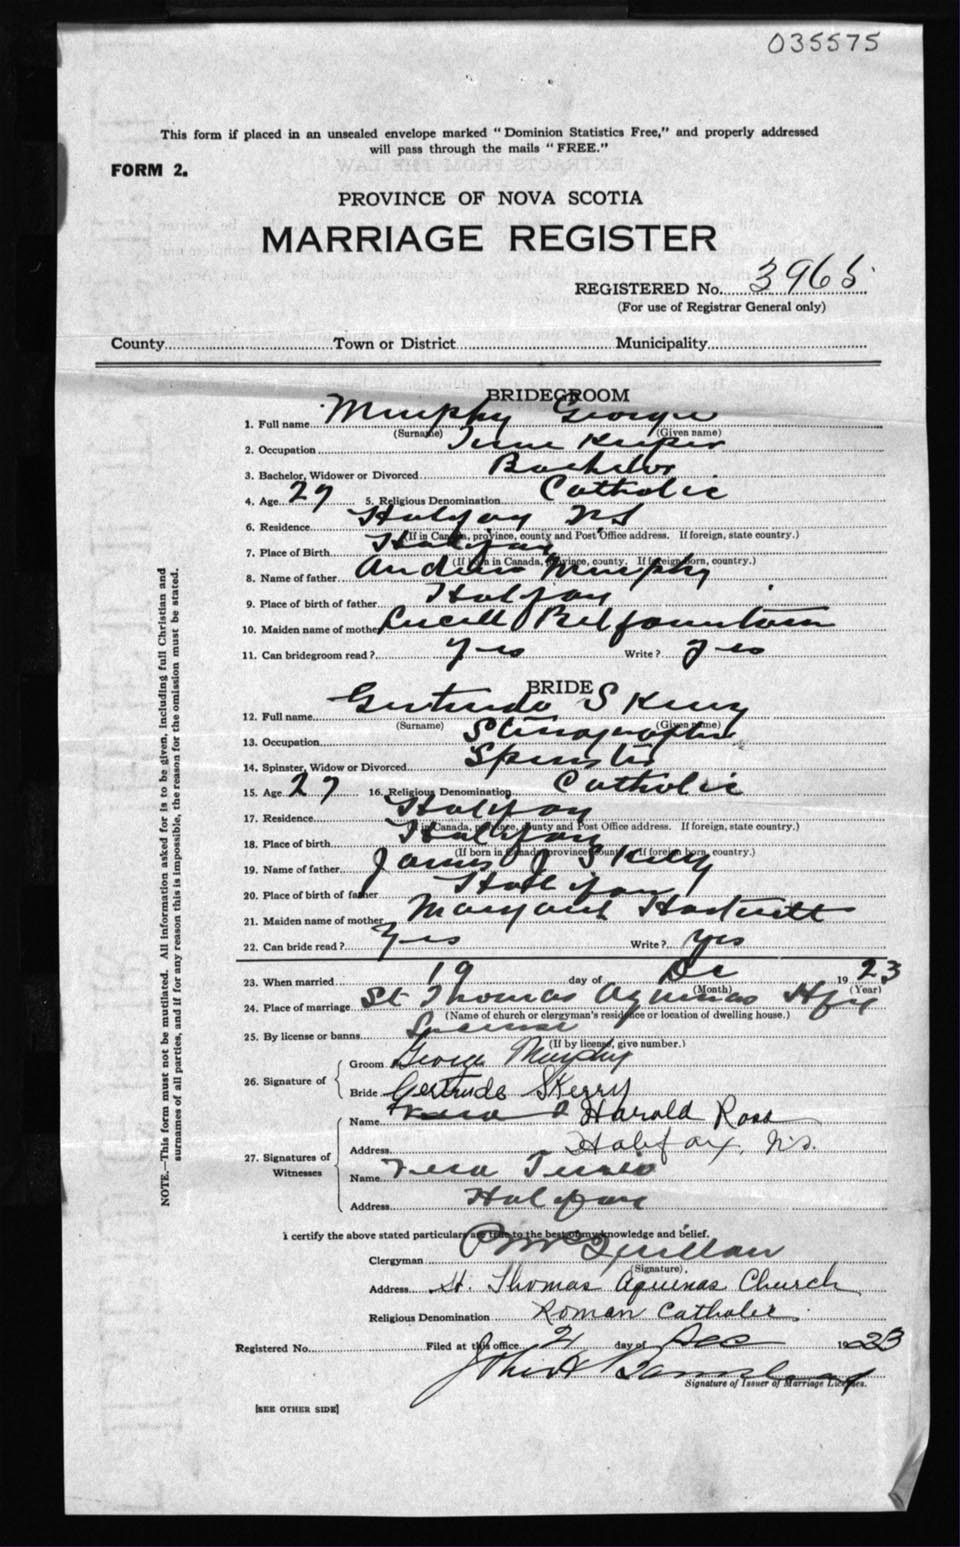 035575
This form if placed in an unsealed envelope marked "Dominion Statistics Free," and properly addressed
will pass through the mails "FREE."
FORM 2.
PROVINCE OF NOVA SCOTIA
MARRIAGE REGISTER
REGISTERED No. 3965
(For use of Registrar General only)
County Town or District Municipality
BRIDEGROOM
1. Full name Murphy George
(Surname) (Given name)
2. Occupation Time Keeper
3. Bachelor, Widower or Divorced Bachelor
4. Age 27 5. Religious Denomination Catholic
6. Residence Halifax NS
(If in Canada, province, county and Post Office address. If foreign, state country.)
7. Place of Birth Halifax
(If born in Canada, province, county. If foreign born, country.)
8. Name of father Andrew Murphy
9. Place of birth of father Halifax
10. Maiden name of mother Belfountain
11. Can bridegroom read? Yes Write? Yes
BRIDE
12. Full name Gertrude Skerry
(Surname) (Given name)
13. Occupation Stenographer
14. Spinster, Widow or Divorced Spinster
15. Age 27 16. Religious Denomination Catholic
17. Residence Halifax
(If in Canada, province, county and Post Office address. If foreign, state country.)
18. Place of birth Halifax
(If born in Canada, province, county. If foreign born, country.)
19. Name of father James J Skerry
20. Place of birth of father Halifax
21. Maiden name of mother Margaret Hartnett
22. Can bride read? Yes Write? Yes
23. When married 19 day of Dec 1923
(Month) (Year)
24. Place of marriage St Thomas Aquinas Hfx
(Name of church or clergyman's residence or location of dwelling house.)
25. By license or banns License
(If by license, give number.)
26. Signature of Groom George Murphy
Bride Gertrude Skerry
27. Signatures of Witnesses Name Harold Ross
Address Halifax, N.S.
Name Vera
Address Halifax
I certify the above stated particulars are true to the best of my knowledge and belief.
Clergyman
(Signature)
Address St. Thomas Aquinas Church
Religious Denomination Roman Catholic
Registered No. Filed at this office 21 day of Dec 1923
Signature of Issuer of Marriage Licenses.
[SEE OTHER SIDE]
NOTE.—This form must not be mutilated. All information asked for is to be given, including full Christian and
surnames of all parties, and if for any reason this is impossible, the reason for the omission must be stated.